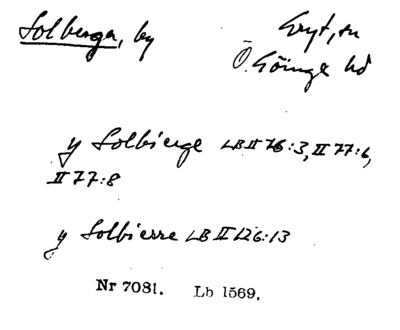 Solberga, by
Gryt, sn
Ö. Göinge hd
y Solbierge LB II 76:3, II 77:6,
II 77:8
y Solbierre LB II 126:13
Nr 7081. Lb 1569.